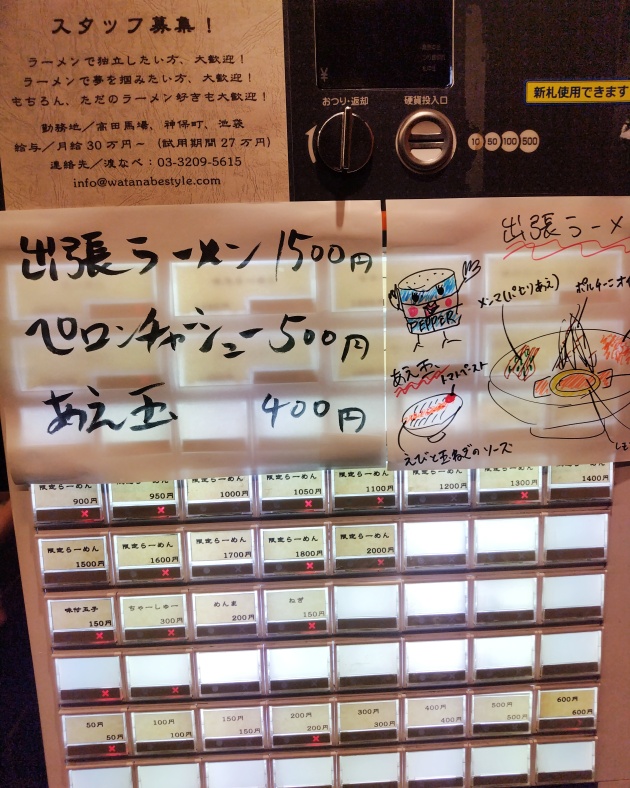 スタッフ募集！
ラーメンで独立したい方、大歓迎！
ラーメンで夢を掴みたい方、大歓迎！
もちろん、ただのラーメン好きも大歓迎！
勤務地／高田馬場、神保町、池袋
給与／月給30万円〜（試用期間27万円）
連絡先／渡なべ：03-3209-5615
info@watanabestyle.com
¥
おつり・返却
硬貨投入口
10 50 100 500
新札使用できます
出張ラーメン 1500円
ペロンチャーシュー 500円
あえ玉 400円
出張ラーメ
PEPPER
メンマ(パセリあえ)
あえ玉
トマトペースト
えびと玉ねぎのソース
限定らーめん 900円
限定らーめん 950円
限定らーめん 1000円
限定らーめん 1050円
限定らーめん 1100円
限定らーめん 1200円
限定らーめん 1300円
限定らーめん 1400円
限定らーめん 1500円
限定らーめん 1600円
限定らーめん 1700円
限定らーめん 1800円
限定らーめん 2000円
味付玉子 150円
ちゃーしゅー 300円
めんま 200円
ねぎ 150円
50円 50円
100円 100円
150円 150円
200円 200円
300円 300円
400円 400円
500円 500円
600円 600円